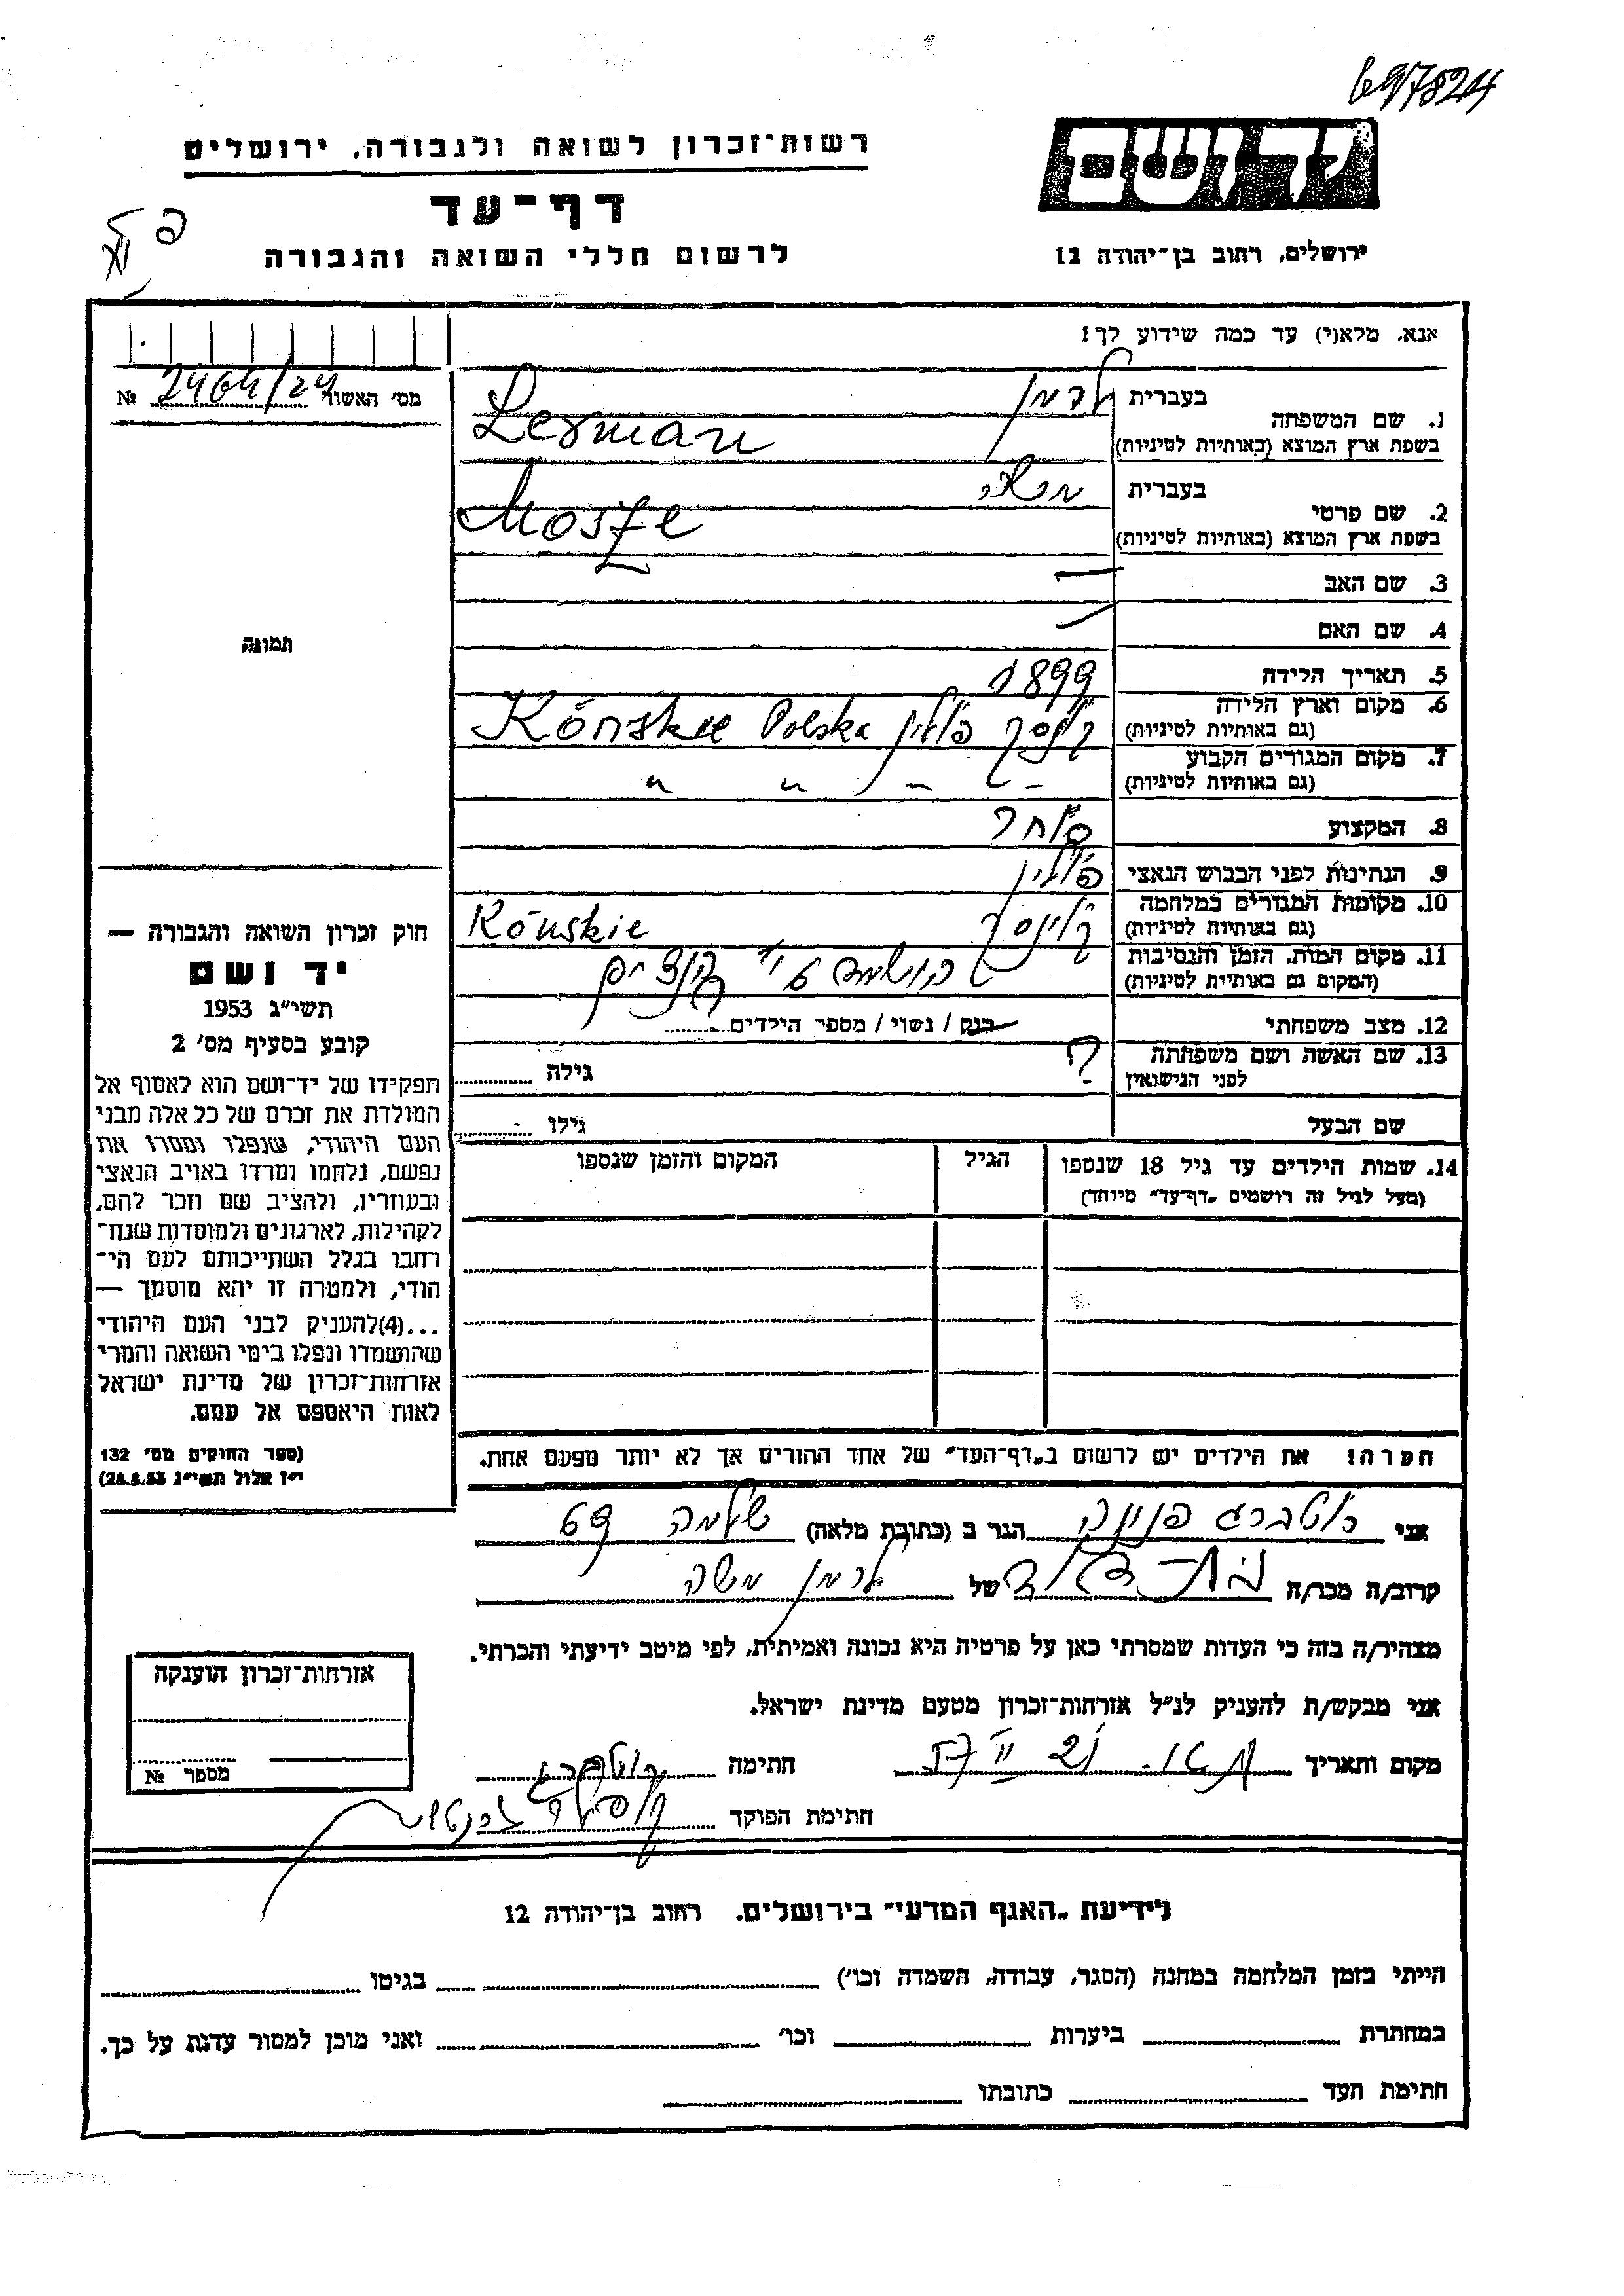 697824
יד ושם
רשות־זכרון לשואה ולגבורה, ירושלים
דף־עד
לרשום חללי השואה והגבורה
ירושלים, רחוב בן־יהודה 12
אנא, מלא(י) עד כמה שידוע לך!
מס' האשור 2464/24 №
1. שם המשפחה
בעברית לרמן
בשפת ארץ המוצא (באותיות לטיניות) Lerman
2. שם פרטי
בעברית משה
בשפת ארץ המוצא (באותיות לטיניות) Mosze
3. שם האב —
4. שם האם —
תמונה
5. תאריך הלידה 1899
6. מקום וארץ הלידה
(גם באותיות לטיניות) קונסק פולין Kónskie Polska
7. מקום המגורים הקבוע
(גם באותיות לטיניות) " " " "
8. המקצוע סוחר
9. הנתינות לפני הכבוש הנאצי פולין
10. מקומות המגורים במלחמה
(גם באותיות לטיניות) קונסק Kónskie
11. מקום המות, הזמן והנסיבות
(המקום גם באותיות לטיניות) הושמד ע"י הנצים
12. מצב משפחתי רנק / נשוי / מספר הילדים
13. שם האשה ושם משפחתה
לפני הנישואין ? גילה
שם הבעל גילו
14. שמות הילדים עד גיל 18 שנספו הגיל המקום והזמן שנספו
(מעל לגיל זה רושמים „דף־עד" מיוחד)
חוק זכרון השואה והגבורה —
יד ושם
תשי"ג 1953
קובע בסעיף מס' 2
תפקידו של יד־ושם הוא לאסוף אל
המולדת את זכרם של כל אלה מבני
העם היהודי, שנפלו ומסרו את
נפשם, נלחמו ומרדו באויב הנאצי
ובעוזריו, ולהציב שם וזכר להם,
לקהילות, לארגונים ולמוסדות שנח־
רחבו בגלל השתייכותם לעם הי־
הודי, ולמטרה זו יהא מוסמך —
...(4)להעניק לבני העם היהודי
שהושמדו ונפלו בימי השואה והמרי
אזרחות־זכרון של מדינת ישראל
לאות היאספם אל עמם.
(ספר החוקים מס' 132
י"ז אלול תשי"ג 28.8.53)
הערה! את הילדים יש לרשום ב„דף־העד" של אחד ההורים אך לא יותר מפעם אחת.
אני רוטברג פנינה הגר ב (כתובת מלאה) שלמה 69
קרוב/ה מכר/ה בת־דוד של לרמן משה
מצהיר/ה בזה כי העדות שמסרתי כאן על פרטיה היא נכונה ואמיתית, לפי מיטב ידיעתי והכרתי.
אני מבקש/ת להעניק לנ"ל אזרחות־זכרון מטעם מדינת ישראל.
מקום ותאריך חתימה רוטברג
חתימת הפוקד
אזרחות־זכרון הוענקה
מספר №
לידיעת „האגף המדעי" בירושלים, רחוב בן־יהודה 12
הייתי בזמן המלחמה במחנה (הסגר, עבודה, השמדה וכו') בגיטו
במחתרת ביערות וכו' ואני מוכן למסור עדות על כך.
חתימת העד כתובתו